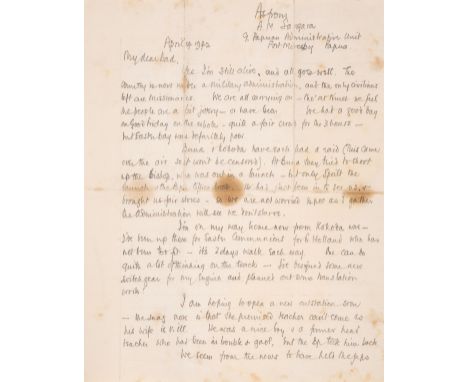 As from
A.M. Sangara
% Papuan Administrative Unit
Port Moresby Papua
April 9 1942
My dear Dad,
Yes I'm still alive, and all goes well. The
country is now under a military administration, and the only civilians
left are missionaries. We are all carrying on - tho' at times we feel
the people are a bit jittery - or have been. We had a good day
on Good Friday on the whole - quite a fair crowd for the 3 hours -
but Easter day was definitely poor.
Buna & Kokoda have each had a raid (this came
over the air so it won't be censored). At Buna they tried to shoot
up the bishop, who was out in a launch - but only spoilt the
launch & the Bp's office book. He has just been in to see us &
brought us fair stores - so we are not worried
the administration will see we don't starve.
I'm on my way home now from Kokoda way -
I've been up there for Easter Communions for Holland who has
not been too fit - it's 2 days walk each way. One can do
quite a lot of thinking on the track - I've designed some new
gear for my Engine and planned out some translation
work.
I am hoping to open a new outstation soon
- the snag now is that the promised teacher can't come as
his wife is v. ill. He was a nice boy & a former head
teacher who has been in trouble & gaol, but the Bp took him back
We seem from the news to have held the Japs